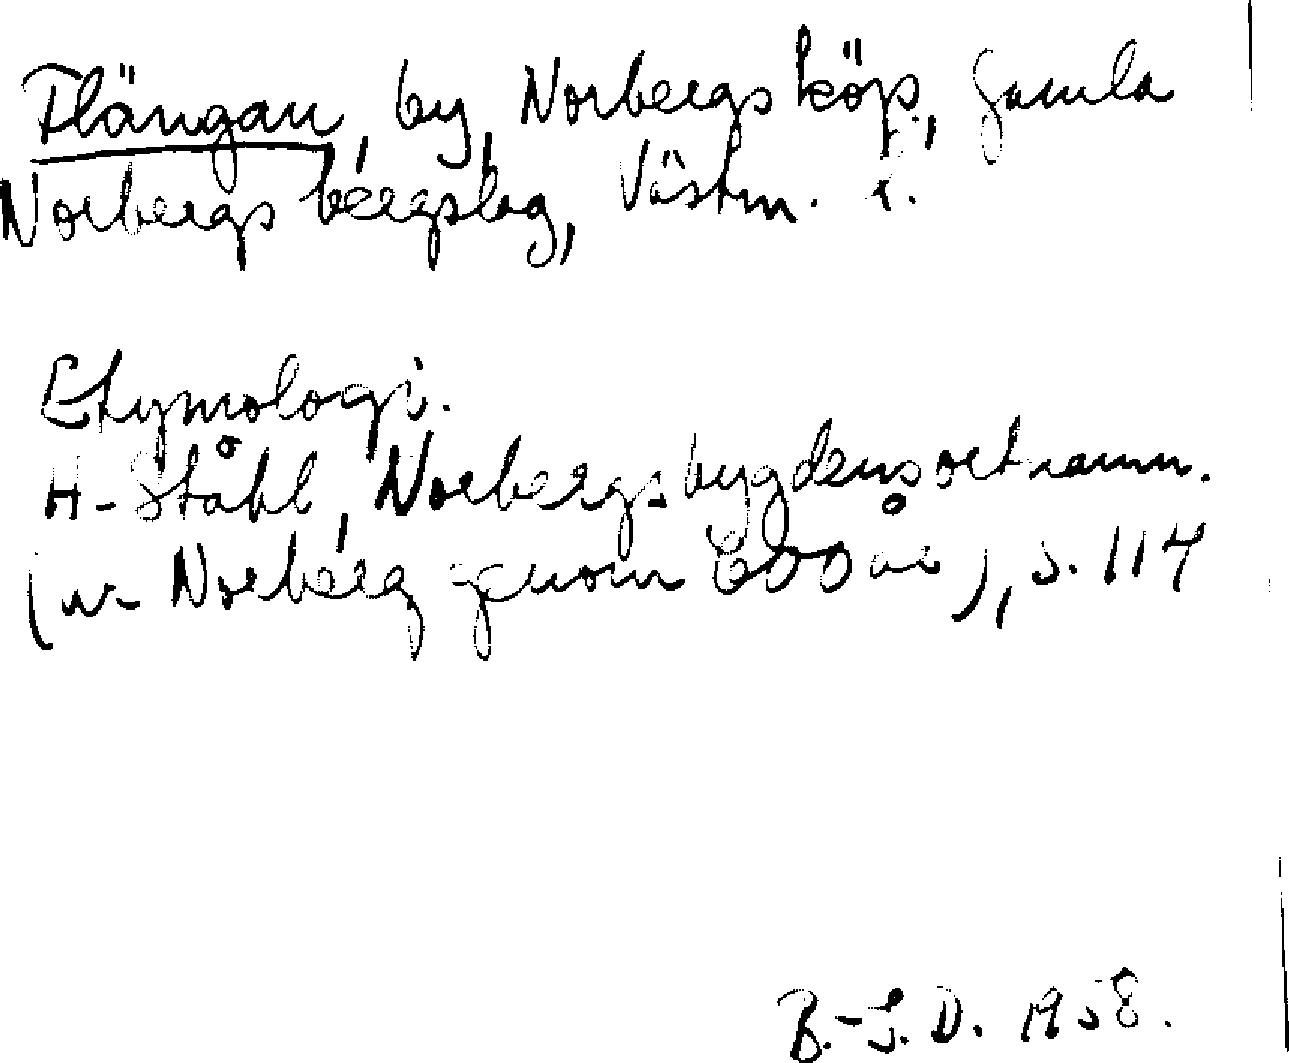 Flängan, by, Norbergs köp., Gamla
Norbergs bergslag, Västm. l.
Etymologi.
H. Ståhl, Norbergsbygdens ortnamn.
(ur Norberg genom 600 år), s. 114
B.-S. D. 1958.